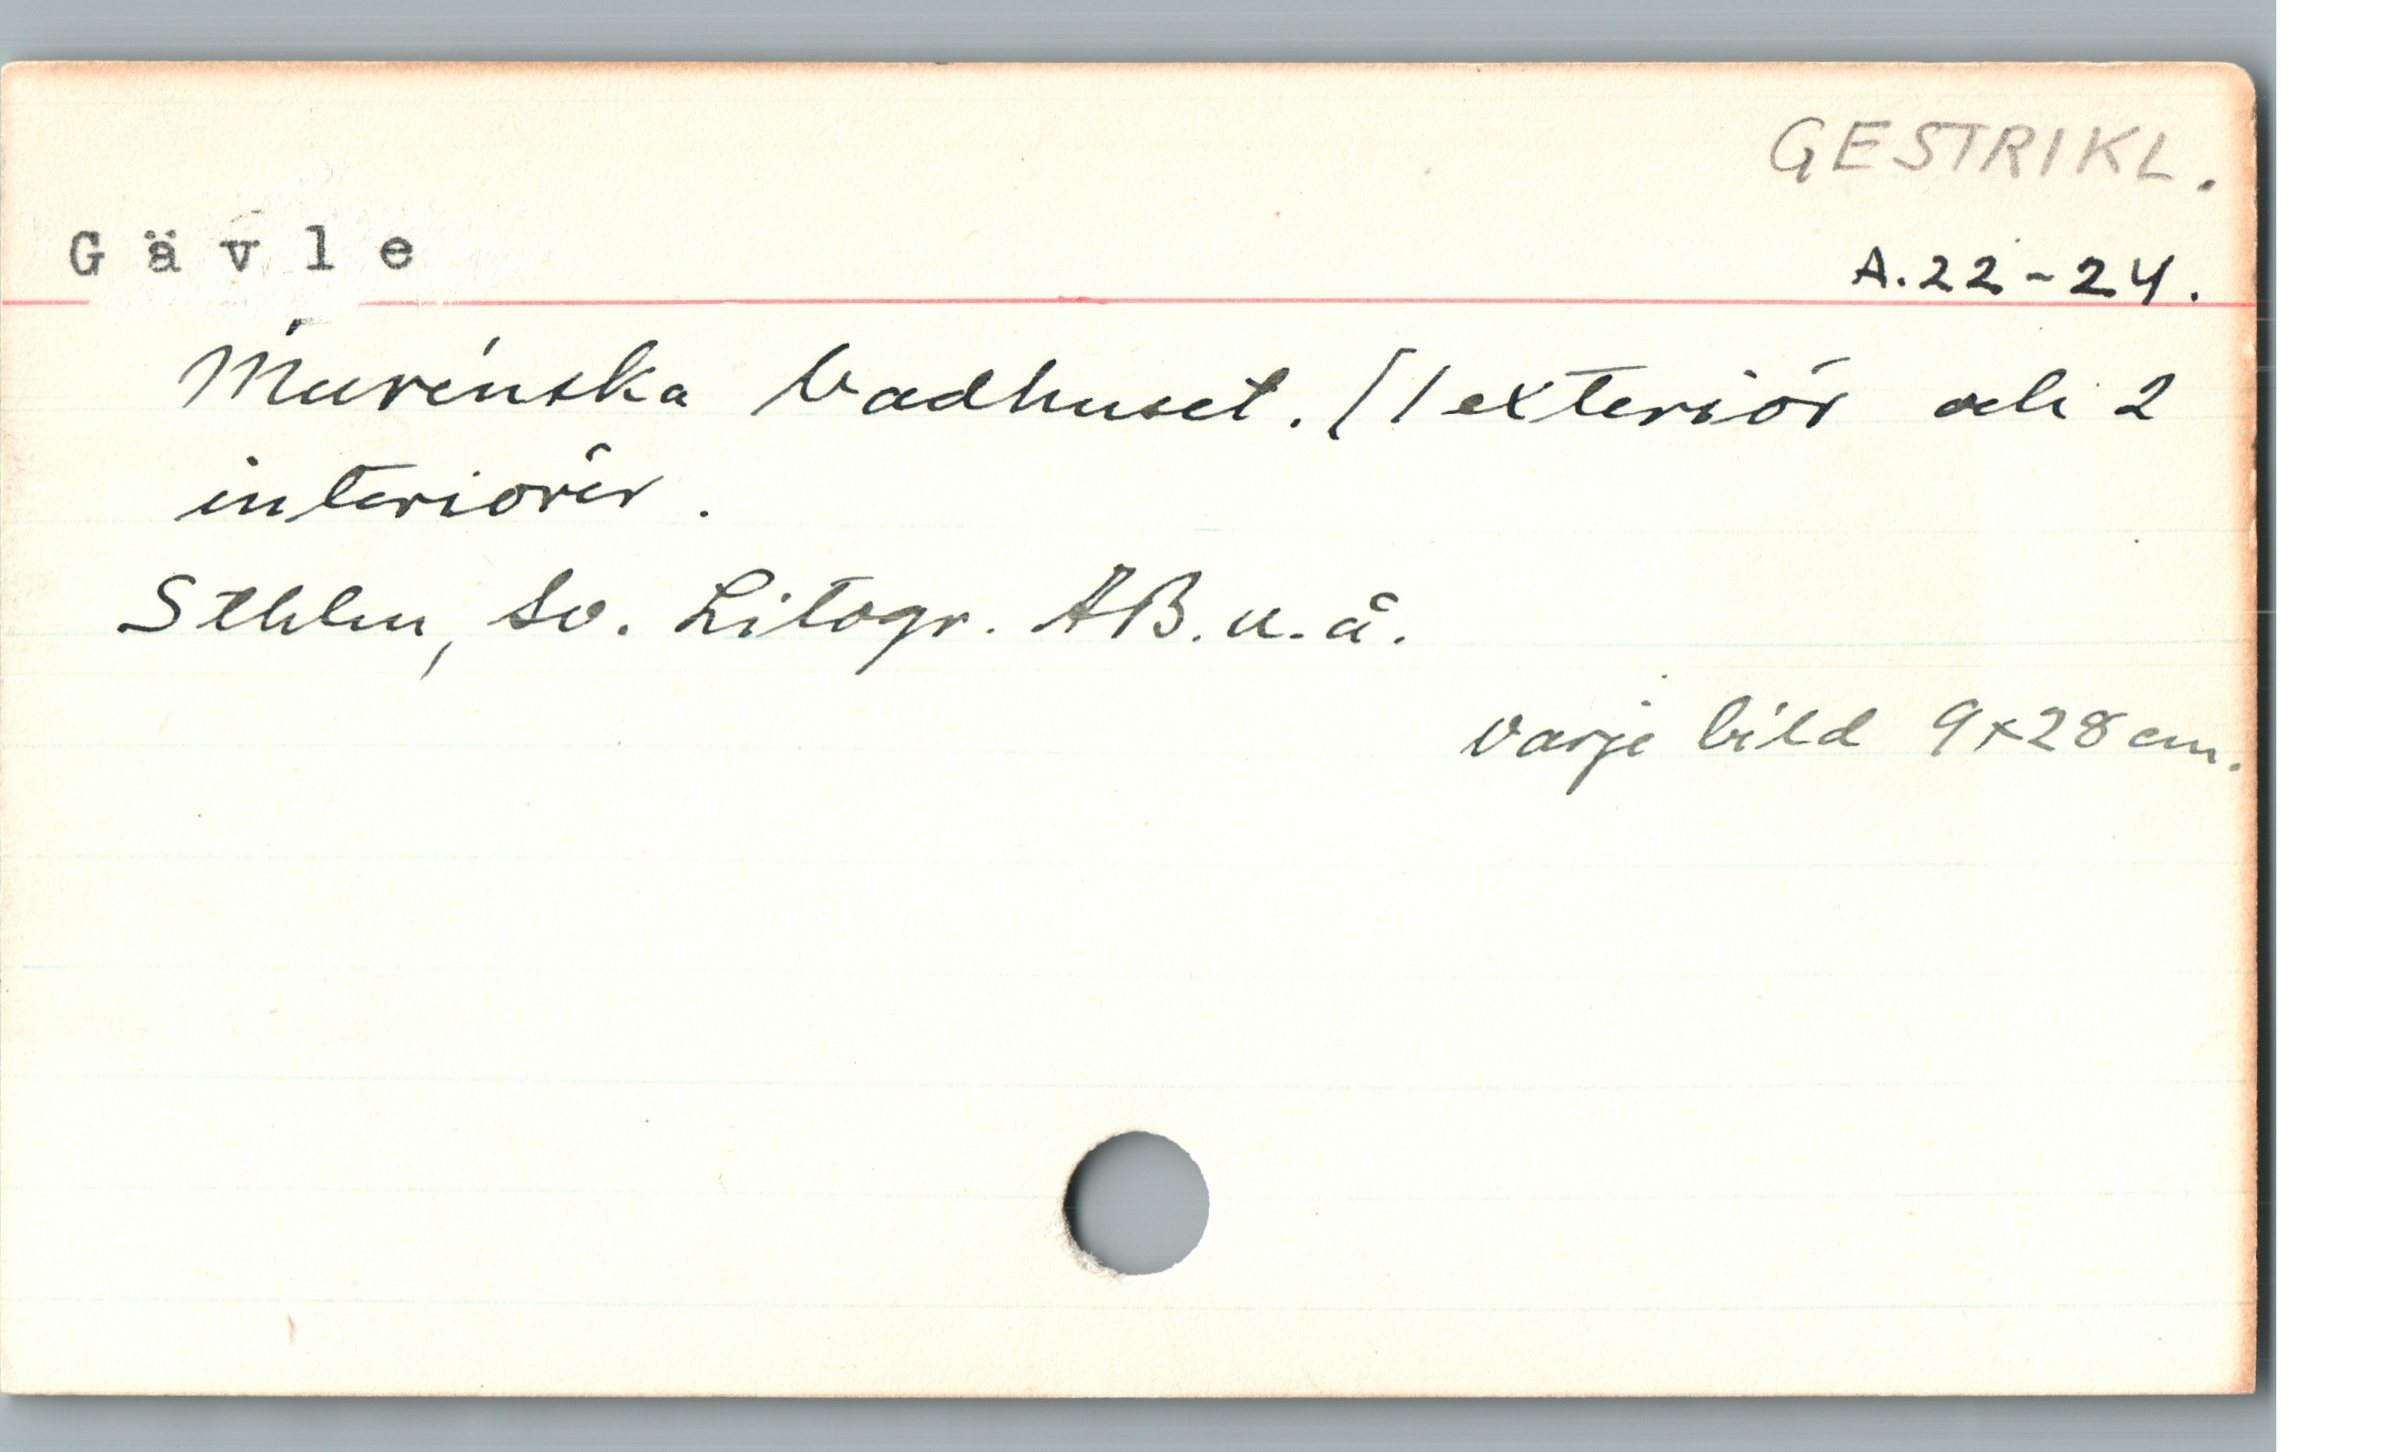 GESTRIKL.
Gävle
A.22-24.
Murénska badhuset. [1 exteriör och 2
interiörer.
Sthlm, Sv. Litogr. AB. u.å.
varje bild 9x28 cm.